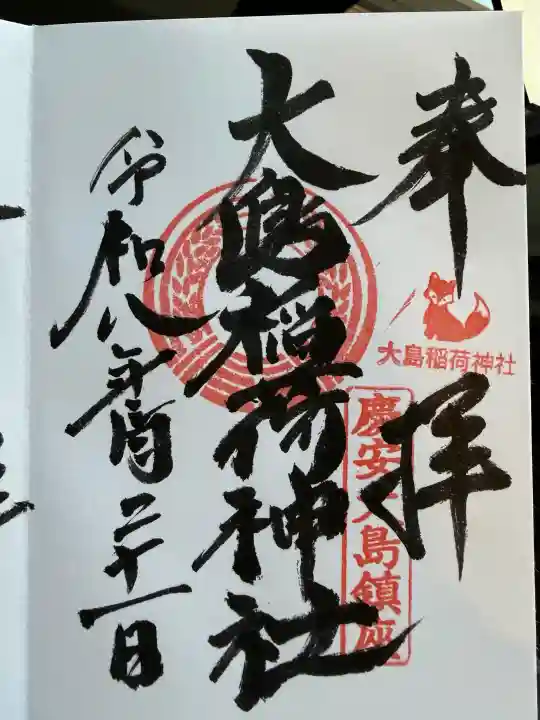 奉拝
大島稲荷神社
慶安大島鎮座
大島稲荷神社
令和八年二月二十一日